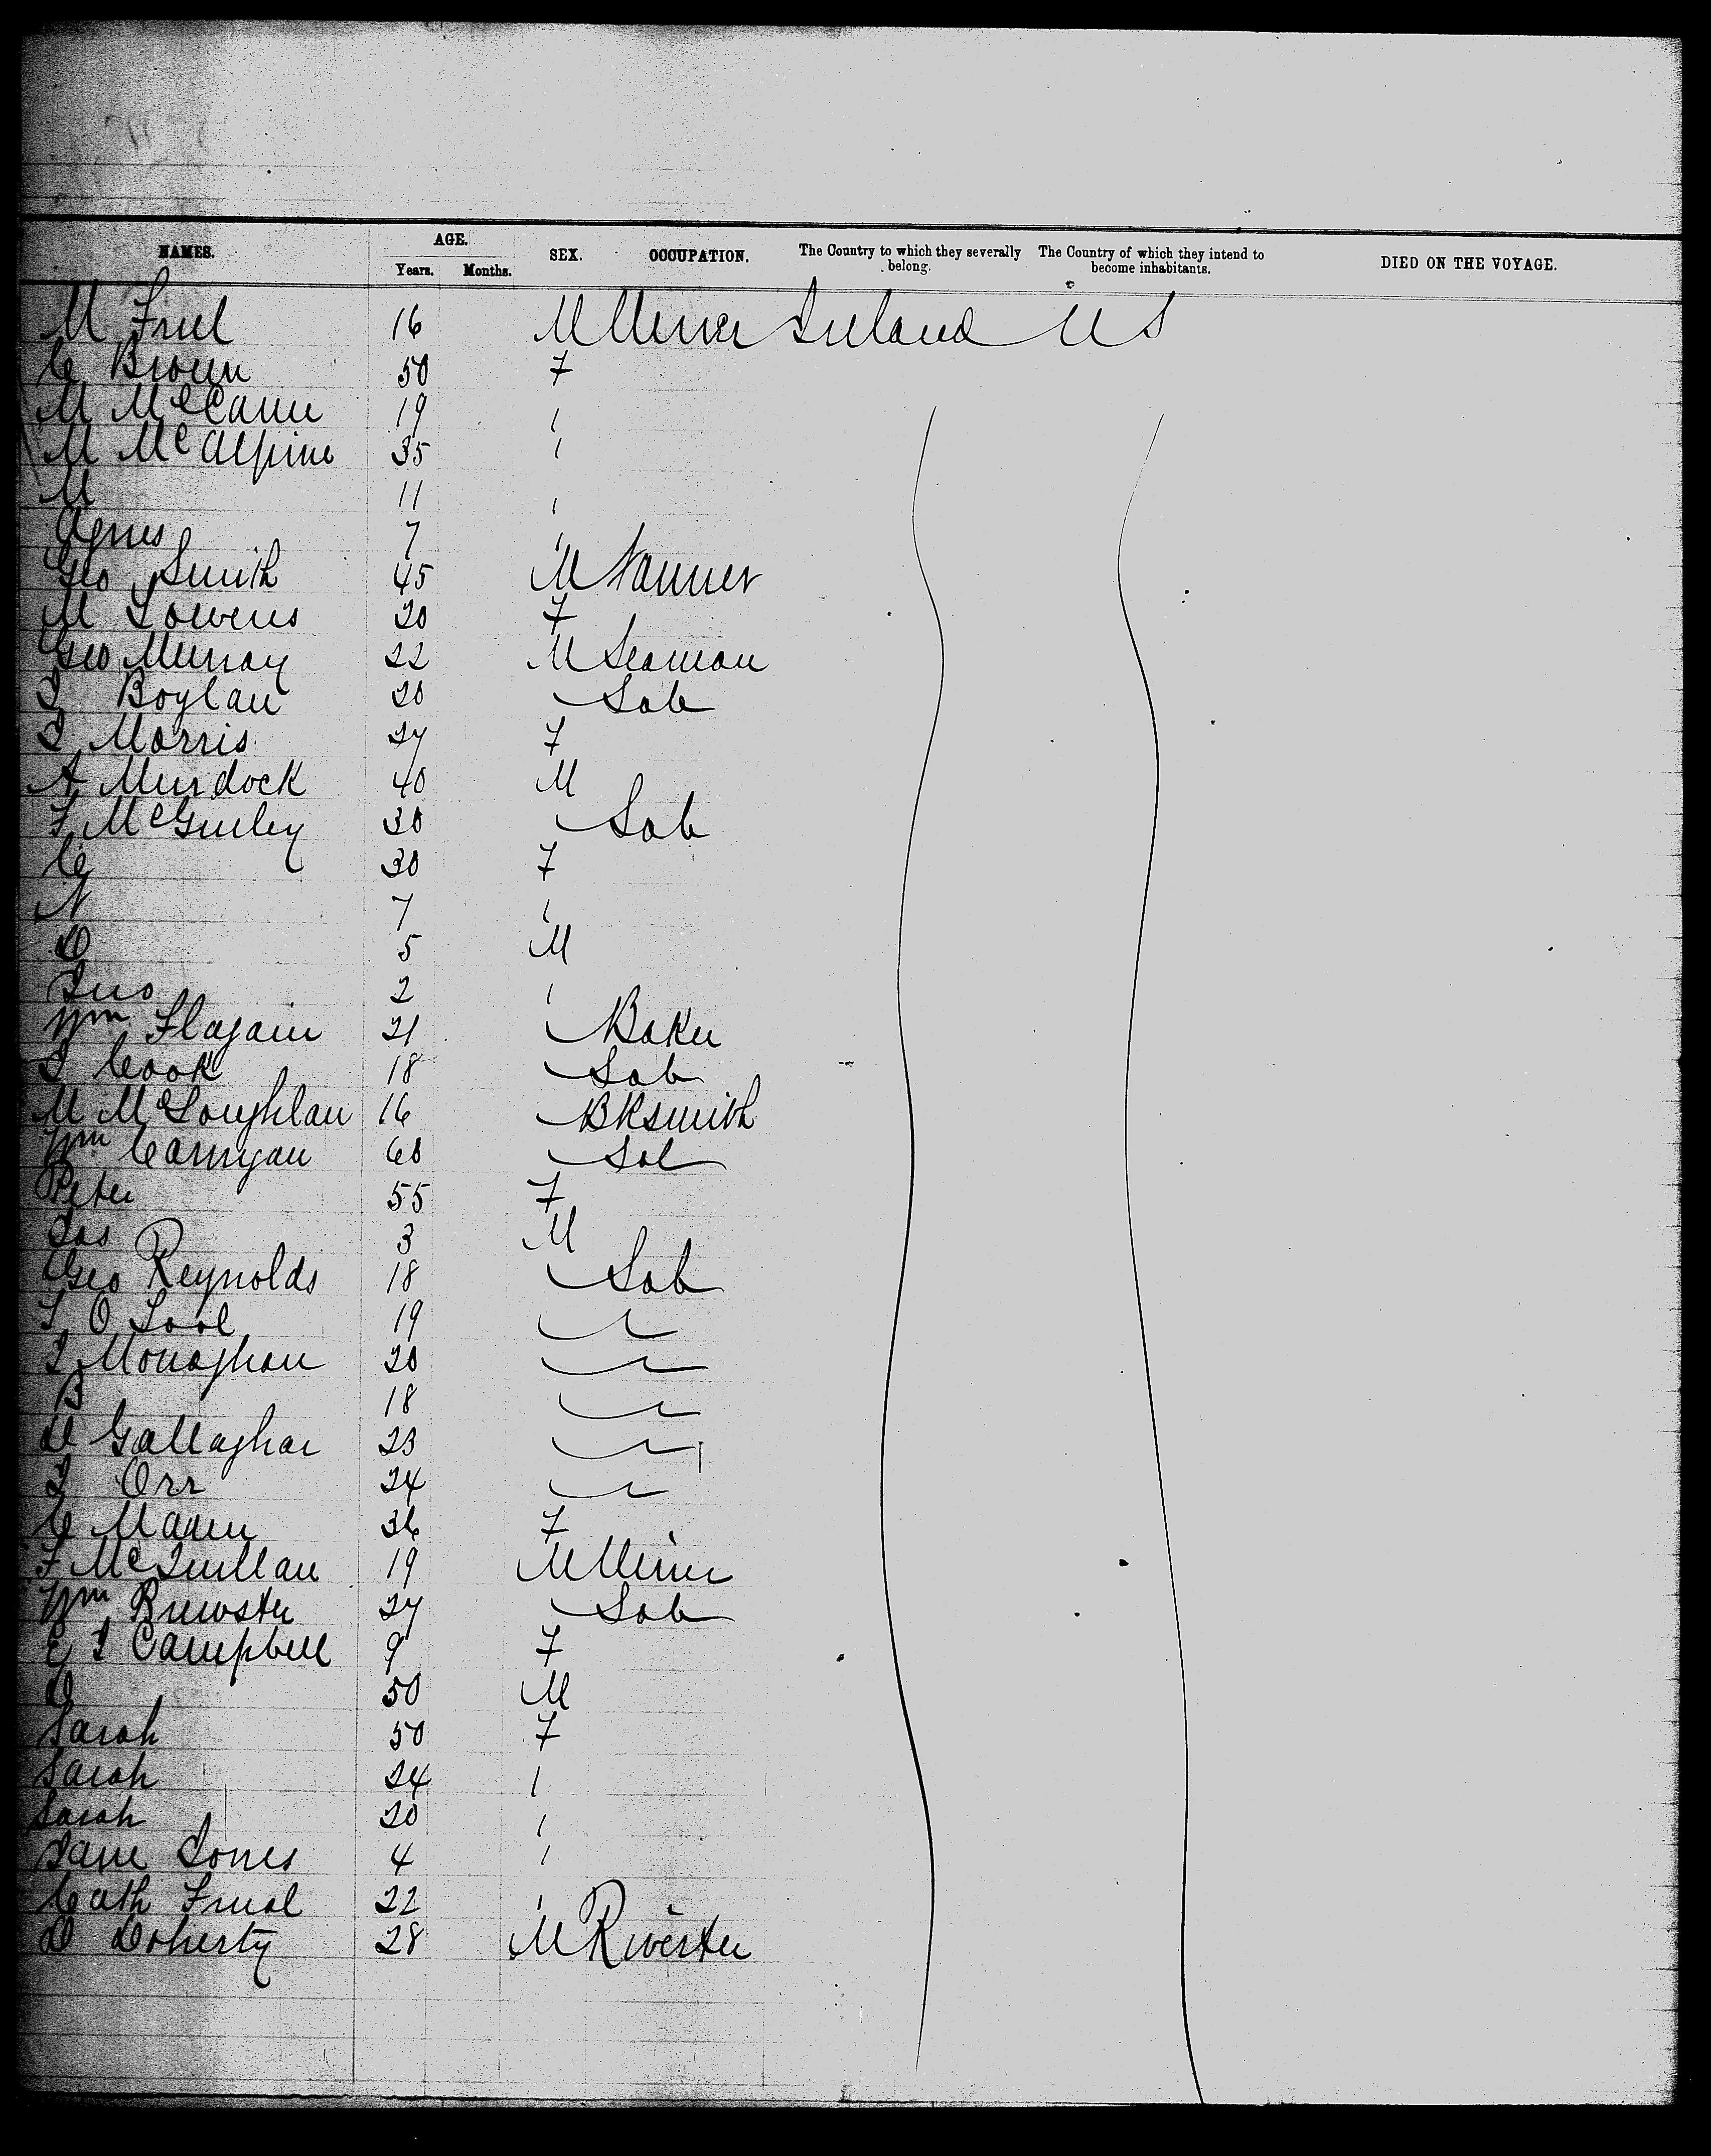 NAMES. AGE. Years. Months. SEX. OCCUPATION. The Country to which they severally belong. The Country of which they intend to become inhabitants. DIED ON THE VOYAGE.
M Friel 16 M Miner Ireland U S
C Brown 50 F
M McCann 19 "
M McAlpine 35 "
M 11 "
Agnes 7 "
Geo Smith 45 M Tanner
M Lowens 20 F
Geo Murray 22 M Seaman
J Boylan 20 Lab
J Morris 24 F
A Murdock 40 M
F McGinley 30 Lab
C 30 F
N 7 "
D 5 M
Jno 2 "
Wm Flagain 21 Baker
J Cook 18 Lab
M McLoughlan 16 Bksmith
Wm Carnigan 60 Lab
Peter 55 F
Jas 3 M
Geo Reynolds 18 Lab
T O Tool 19
J Monaghan 20
B 18
D Gallaghar 23
J Orr 24
C 36 F
F McQuillan 19 M Miner
Wm Brewster 24 Lab
E J Campbell 9 F
D 50 M
Sarah 50 F
Sarah 24 "
Sarah 20 "
Jane Jones 4 "
Cath Frual 22 "
D Doherty 28 M